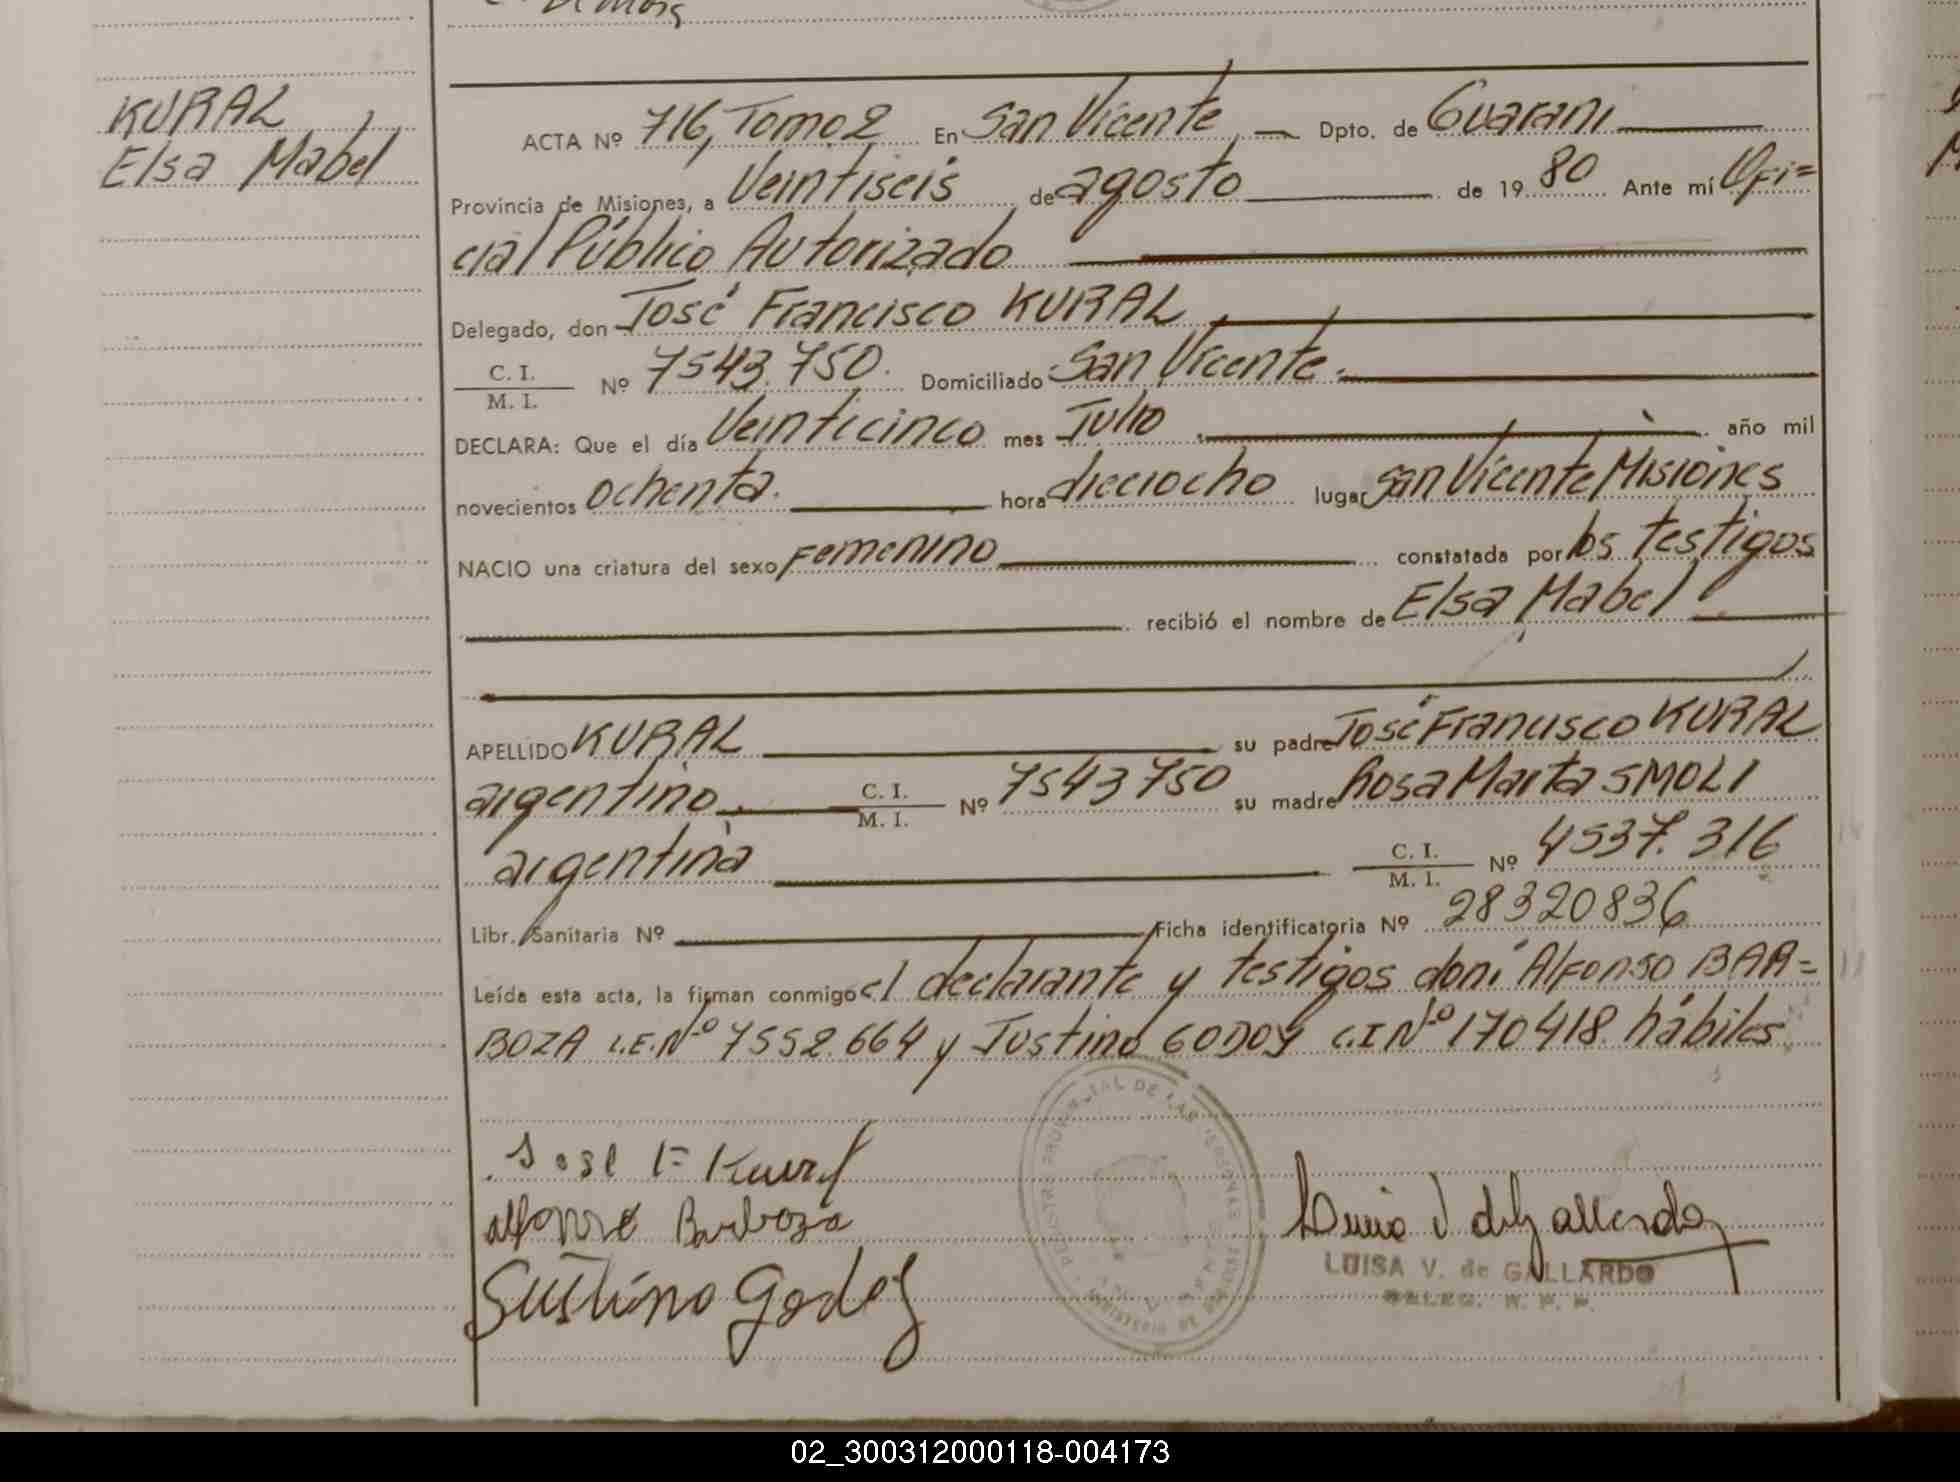 KURAL
Elsa Mabel
ACTA Nº 716, Tomo 2 En San Vicente, Dpto. de Guaraní
Provincia de Misiones, a Veintiseis de agosto de 1980 Ante mí Ofi=
cial Público Autorizado
Delegado, don José Francisco KURAL
C. I.
M. I. Nº 7543.750. Domiciliado San Vicente.
DECLARA: Que el día Veinticinco mes Julio año mil
novecientos ochenta. hora dieciocho lugar San Vicente, Misiones
NACIO una criatura del sexo Femenino constatada por los testigos
recibió el nombre de Elsa Mabel
APELLIDO KURAL su padre José Francisco KURAL
argentino C. I.
M. I. Nº 7543750 su madre Rosa Marta SMOLI
argentina C. I.
M. I. Nº 4537.316
Libr. Sanitaria Nº Ficha identificatoria Nº 28320836
Leída esta acta, la firman conmigo el declarante y testigos don: Alfonso BAR=
BOZA L.E.Nº 7552.664 y Justino GODOY C.I Nº 170418. hábiles
Jose F Kural
Alfonso Barboza
Justino Godoy
Luisa V de Gallardo
LUISA V. de GALLARDO
DELEG. R. P. P.
REGISTRO PROVINCIAL DE LAS PERSONAS
02_300312000118-004173